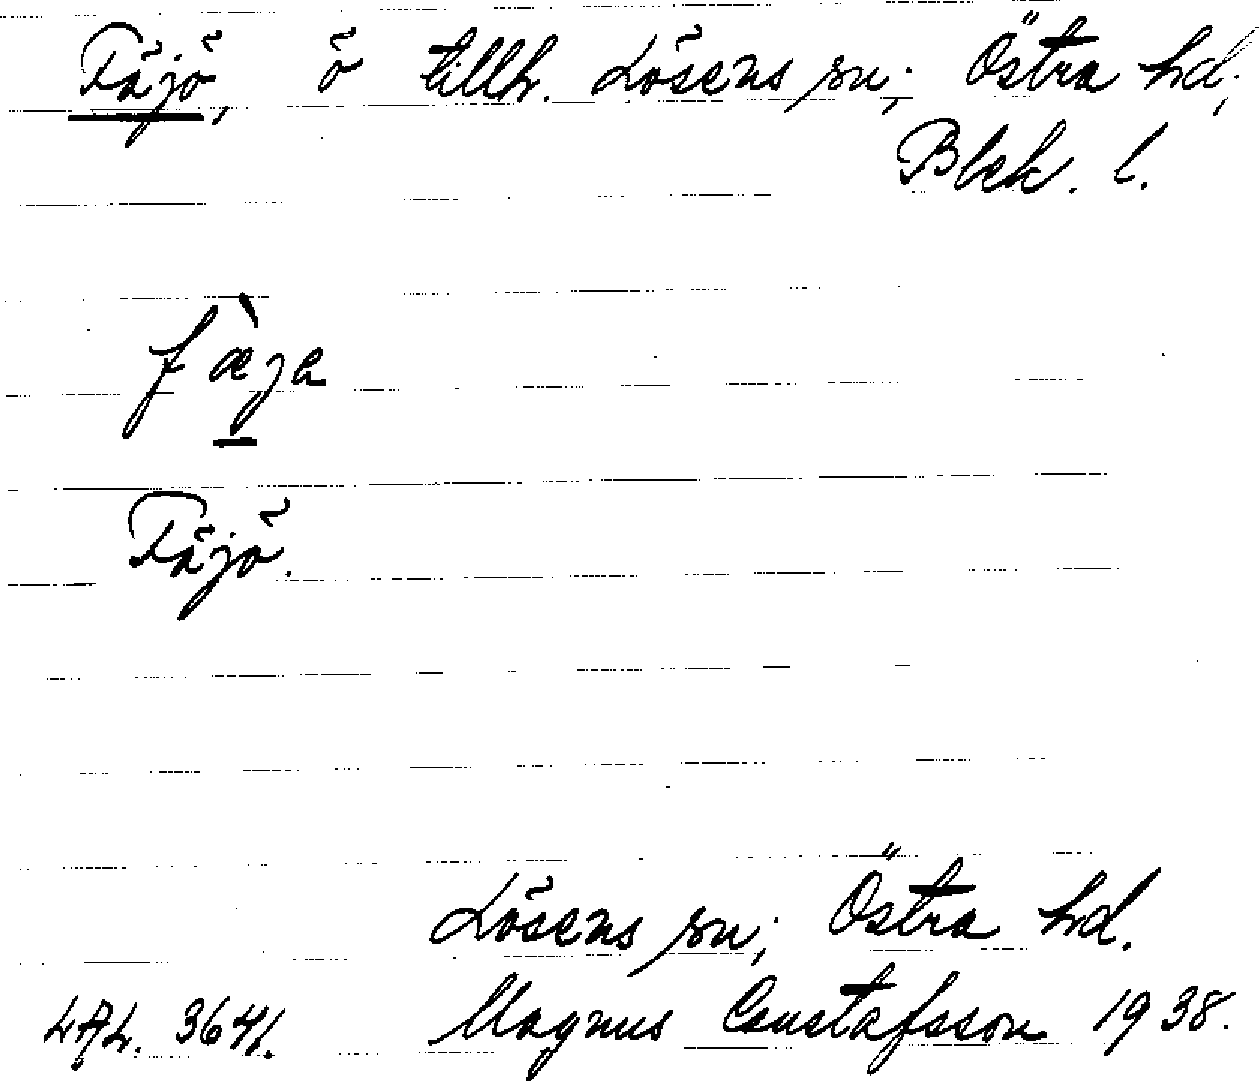 Fäjö, ö tillh. Lösens sn; Östra hd;
Blek. l.
fæ̀ja
Fäjö.
Lösens sn; Östra hd.
LAL. 3641. Magnus Gustafsson 1938.